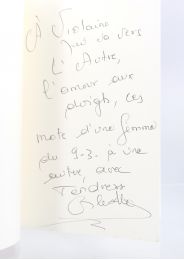 À Violaine
qui va vers
L'Autre,
l'amour aux
doigts, ces
mots d'une femme
du 9-3. à une
autre, avec
Tendresse